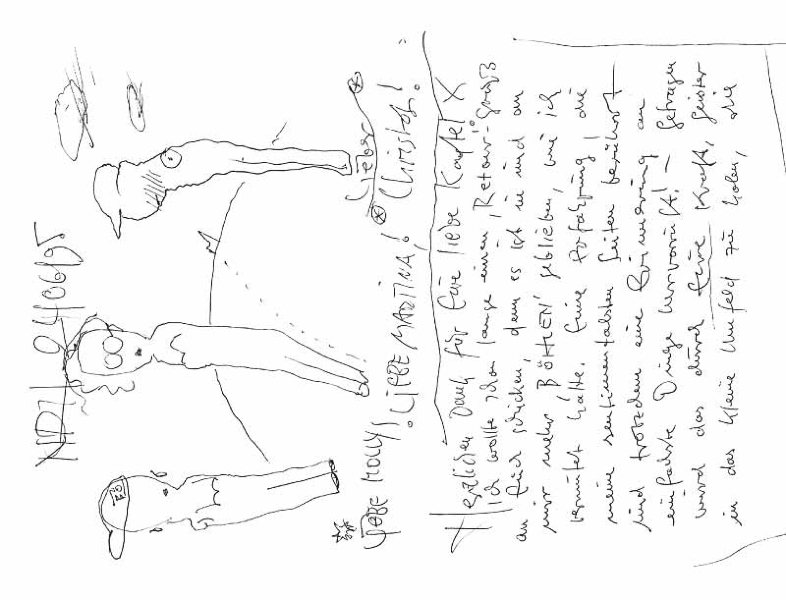 LIEBE MOLLY! LIEBE MARTINA! Lieber Christoph!
Herzlichen Dank für Eure liebe Karte! X
Ich wollte schon lange einen "Retour"-Gruß
an Euch schicken, denn es ist in und an
mir mehr "BÖHLEN" geblieben, wie ich
vermutet hätte. Eine Erfahrung, die
meine sentimentalsten Seiten berührt
und trotzdem eine Erinnerung an
einfachste Dinge hervorruft! – Getragen
wird das durch Eure Kraft, Geister
in das kleine Umfeld zu holen, die